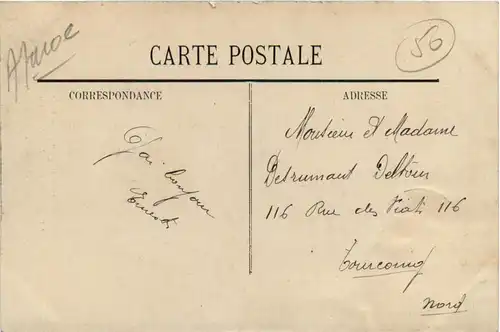 Maroc
50
CARTE POSTALE
CORRESPONDANCE
ADRESSE
bonjour
Ernest
Monsieur et Madame
Destrumant
116 Rue des Piats 116
Tourcoing
Nord